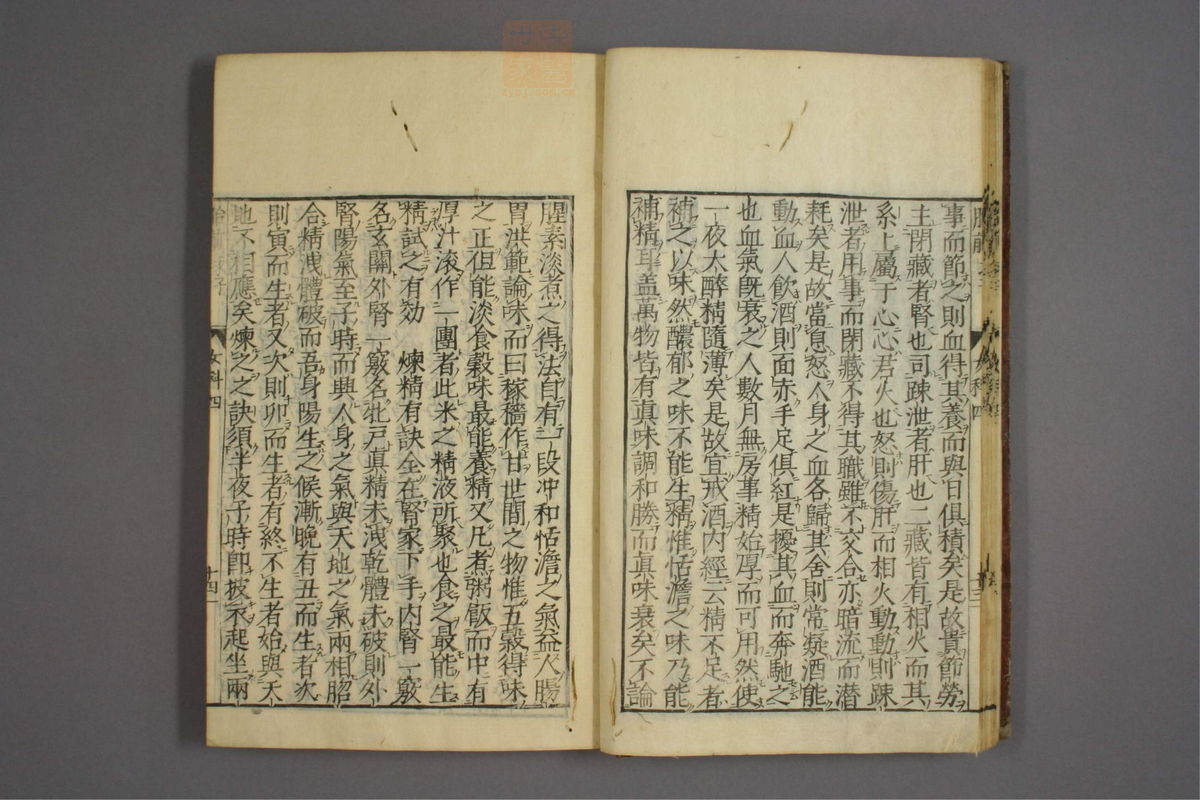 事而節之則血得其養而與日俱積矣是故貴節勞
主閉藏者腎也司疎泄者肝也二藏皆有相火而其
系上屬于心心君火也怒則傷肝而相火動動則疎
泄者用事而閉藏不得其職雖不交合亦暗流而潛
耗矣是故當息怒人身之血各歸其舍則常凝酒能
動血人飲酒則面赤手足俱紅是擾其血而奔馳之
也血氣旣衰之人數月無房事精始厚而可用然使
一夜大醉精隨薄矣是故宜戒酒內經云精不足者
補之以味然醲郁之味不能生精惟恬澹之味乃能
補精耳盖萬物皆有眞味調和勝而眞味衰矣不論
腥素淡煮之得法自有一段冲和恬澹之氣益人腸
胃洪範論味而曰稼穡作甘世間之物惟五穀得味
之正但能淡食穀味最能養精又凡煮粥飯而中有
厚汁滾作一團者此米之精液所聚也食之最能生
精試之有効 煉精有訣全在腎家下手內腎一竅
名玄關外腎一竅名牝戶真精未洩乾體未破則外
腎陽氣至子時而興人身之氣與天地之氣兩相吻
合精洩體破而吾身陽生之候漸晚有丑而生者次
則寅而生者又次則卯而生者有終不生者始與天
地不相應矣煉之之訣須半夜子時卽披衣起坐兩
女科四
十四